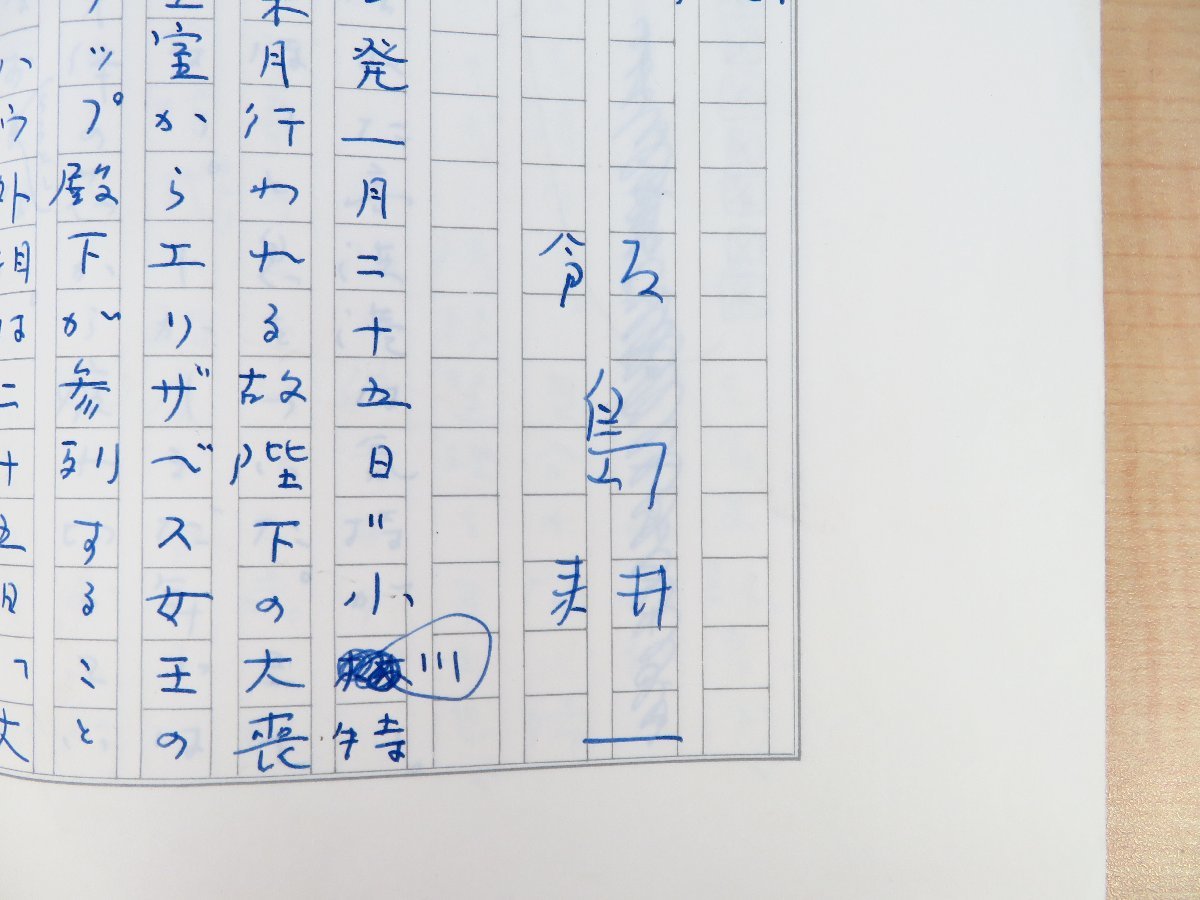 飯島耕一
発一月二十五日〃小川特
来月行われる故陛下の大喪
王室からエリザベス女王の
ップ殿下が参列すること
ハウ外相は二十五日